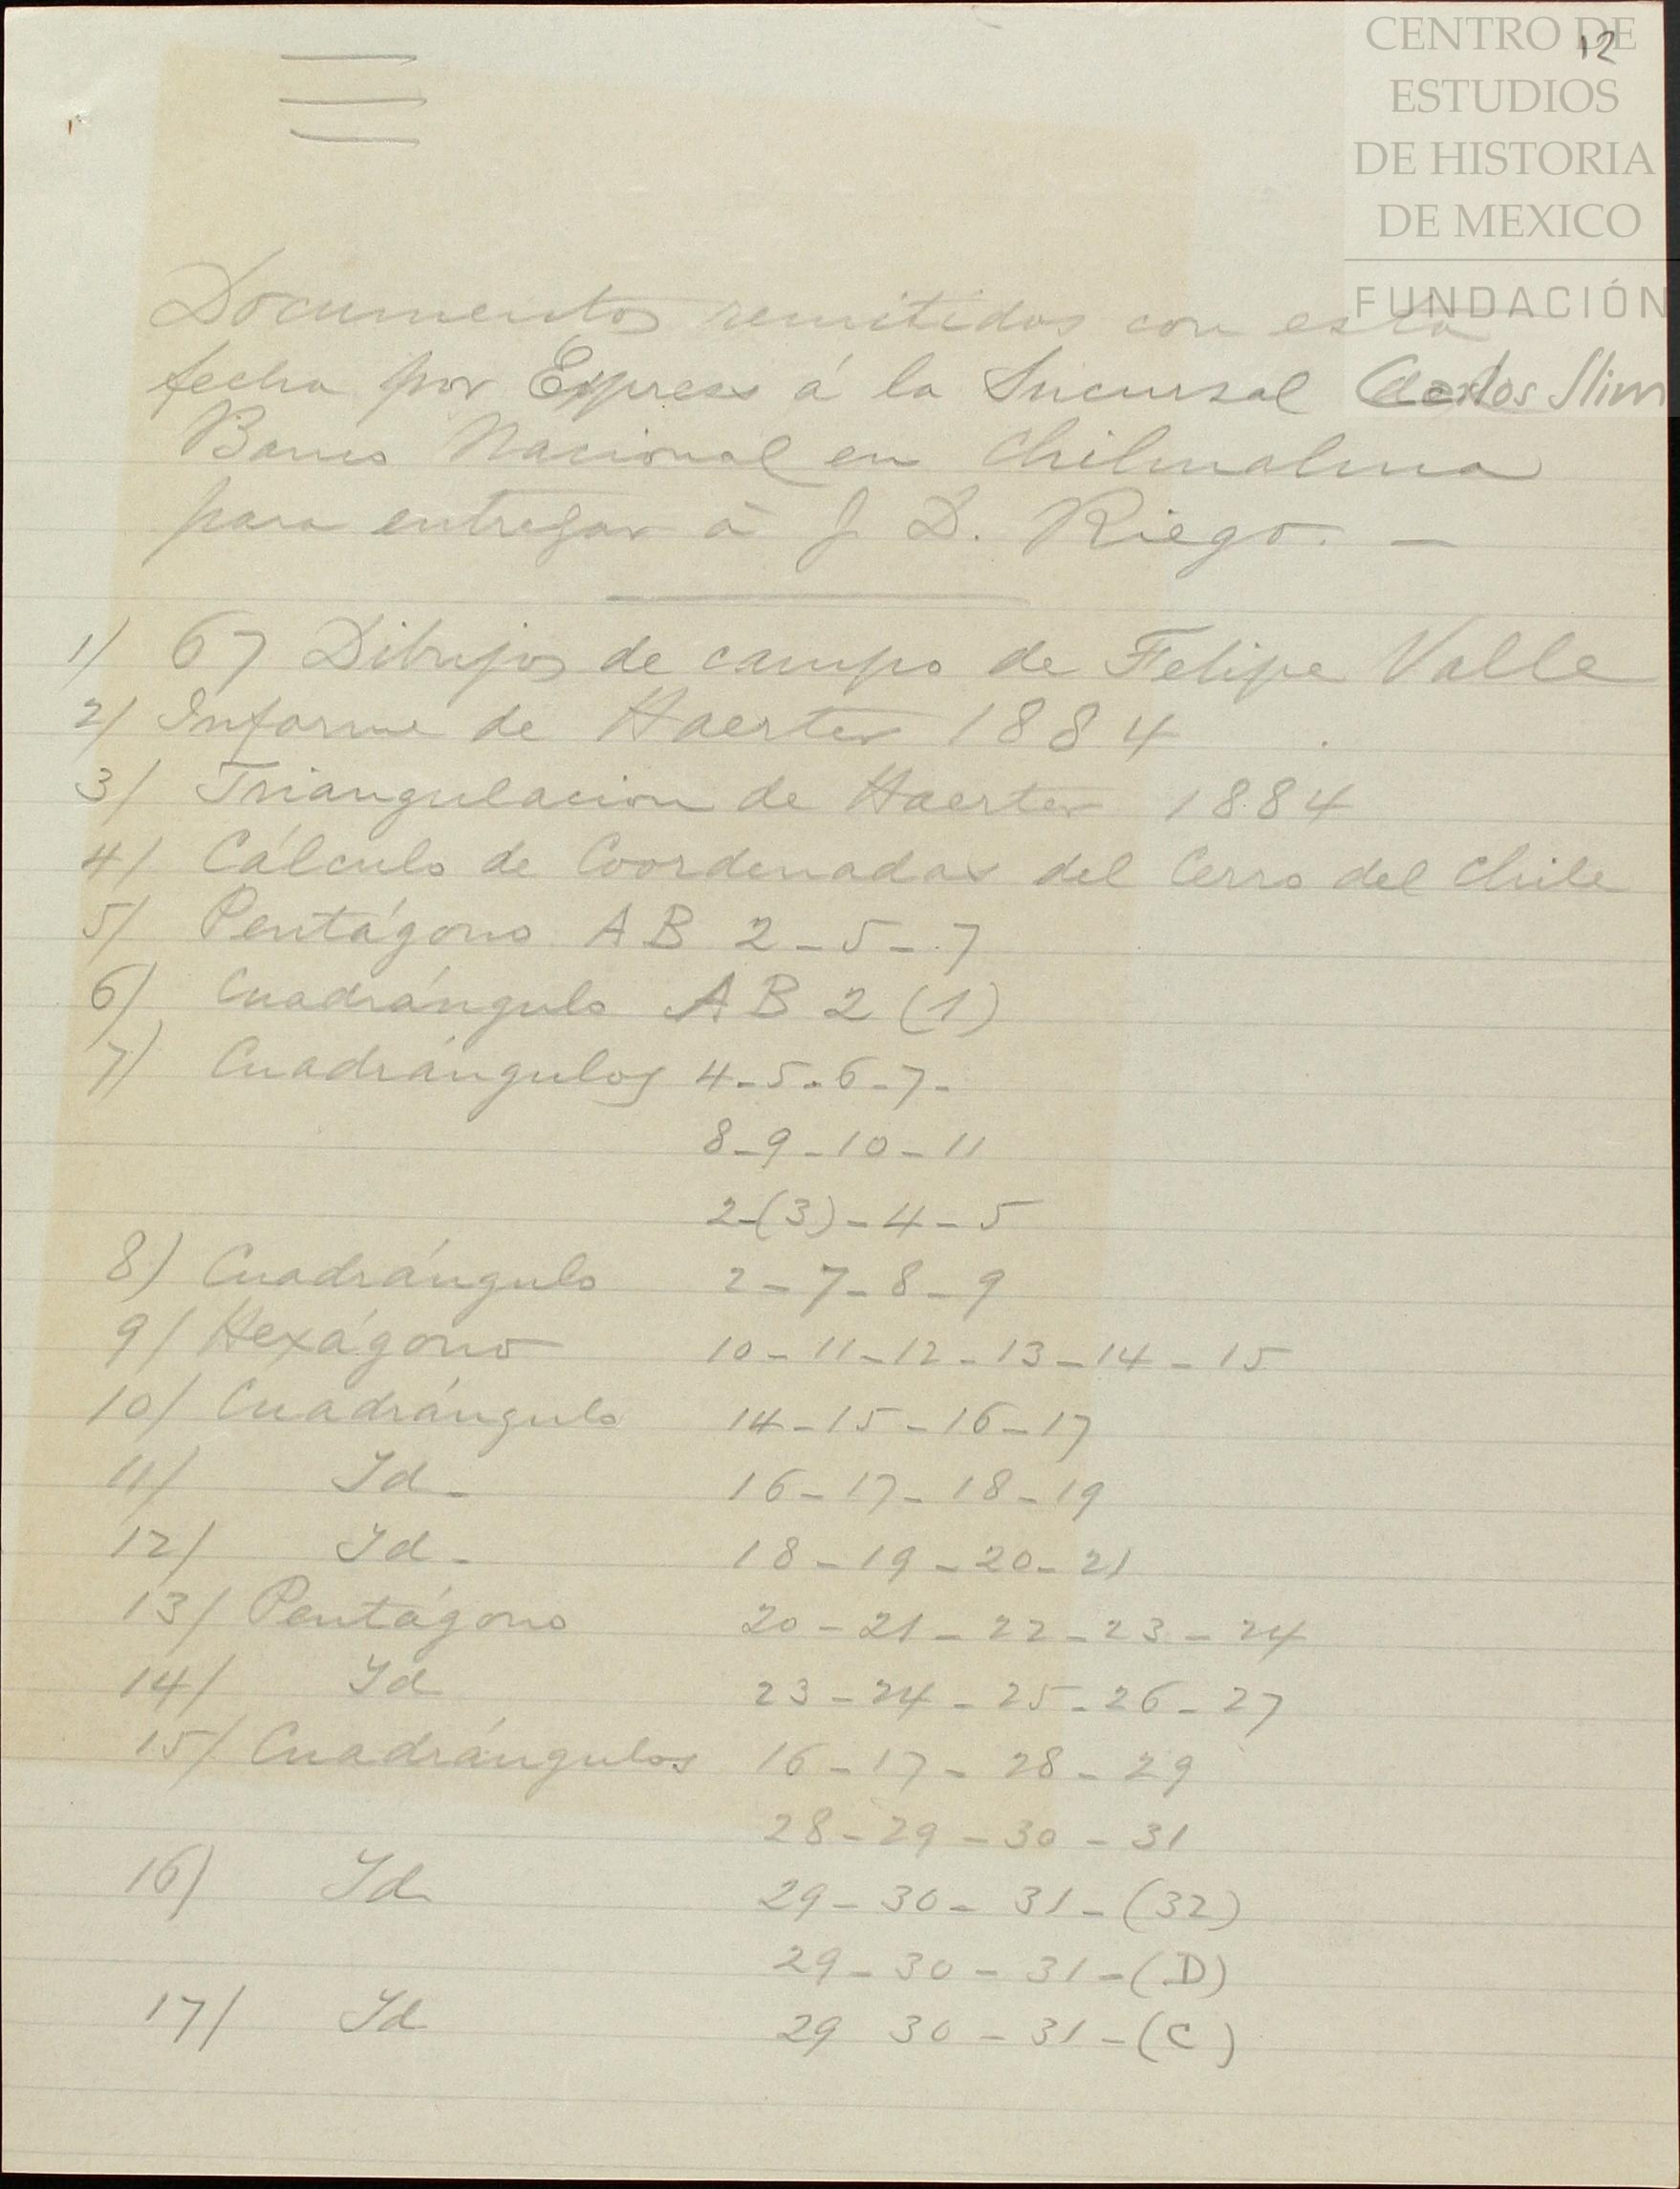 12
CENTRO DE
ESTUDIOS
DE HISTORIA
DE MEXICO
FUNDACIÓN
Carlos Slim
Documentos remitidos con esta
fecha por Express á la Sucursal del
Banco Nacional en Chihuahua
para entregar á J. D. Riego. —
1) 67 Dibujos de campo de Felipe Valle
2) Informe de Haerter 1884
3) Triangulacion de Haerter 1884
4) Cálculo de Coordenadas del Cerro del Chile
5) Pentágono A B 2 - 5 - 7
6) Cuadrángulo A B 2 (1)
7) Cuadrángulos 4 - 5 - 6 - 7 -
8 - 9 - 10 - 11
2 - (3) - 4 - 5
8) Cuadrángulo 2 - 7 - 8 - 9
9) Hexágono 10 - 11 - 12 - 13 - 14 - 15
10) Cuadrángulo 14 - 15 - 16 - 17
11) Id - 16 - 17 - 18 - 19
12) Id - 18 - 19 - 20 - 21
13) Pentágono 20 - 21 - 22 - 23 - 24
14) Id 23 - 24 - 25 - 26 - 27
15) Cuadrángulos 16 - 17 - 28 - 29
28 - 29 - 30 - 31
16) Id 29 - 30 - 31 - (32)
29 - 30 - 31 - (D)
17) Id 29 30 - 31 - (C)